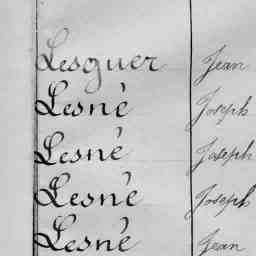 Lesguer Jean
Lesnè Joseph
Lesnè Joseph
Lesnè Joseph
Lesnè Jean